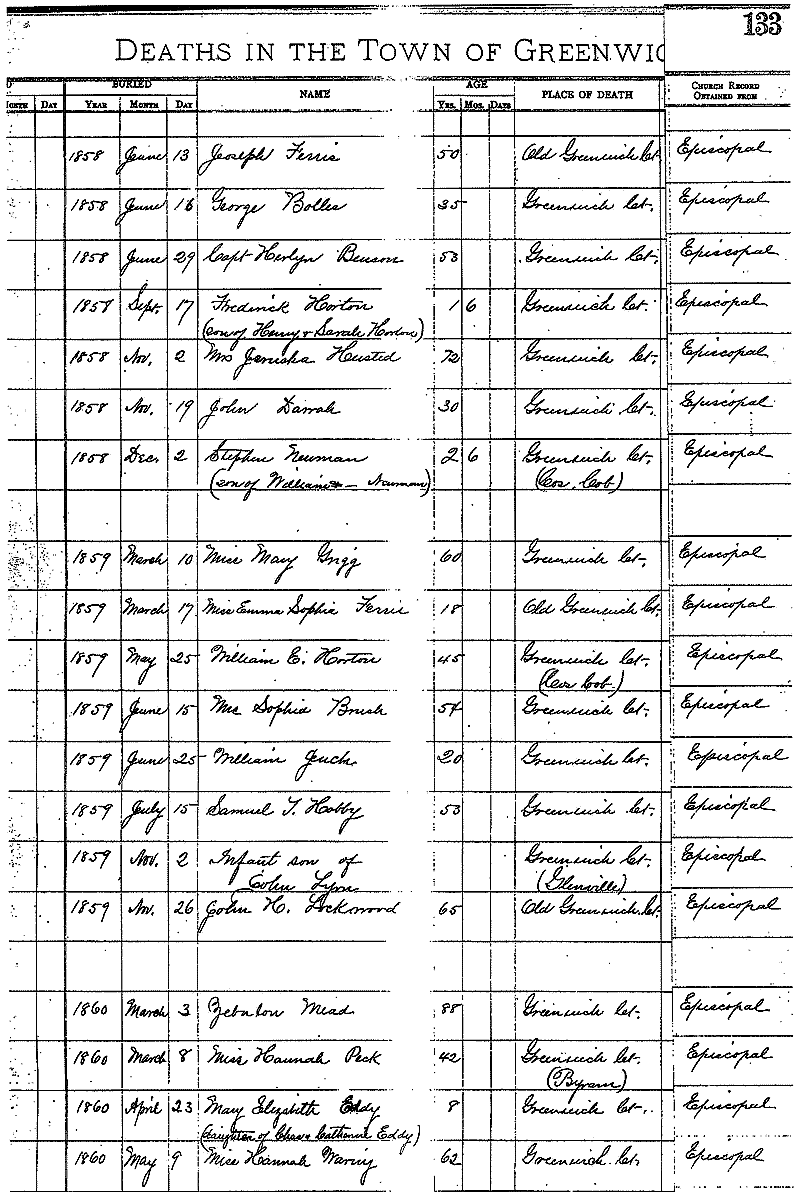 133
DEATHS IN THE TOWN OF GREENWIC
BURIED AGE
MONTH DAY YEAR MONTH DAY NAME YRS. MOS. DAYS PLACE OF DEATH CHURCH RECORD
OBTAINED FROM
1858 June 13 Joseph Ferris 50 Old Greenwich Ct. Episcopal
1858 June 16 George Bolles 35 Greenwich Ct. Episcopal
1858 June 29 Capt Benson 53 Greenwich Ct. Episcopal
1858 Sept. 17 Fredrick Horton 1 6 Greenwich Ct. Episcopal
(son of Henry & Sarah Horton)
1858 Nov. 2 Mrs Jerusha Husted 72 Greenwich Ct. Episcopal
1858 Nov. 19 John Darrah 30 Greenwich Ct. Episcopal
1858 Dec. 2 Stephen Neuman 2 6 Greenwich Ct. Episcopal
(son of William & — Neuman) (Cos Cob)
1859 March 10 Miss Mary Grigg 60 Greenwich Ct. Episcopal
1859 March 17 Miss Emma Sophia Ferris 18 Old Greenwich Ct. Episcopal
1859 May 25 William E. Horton 45 Greenwich Ct. Episcopal
(Cos Cob.)
1859 June 15 Mrs Sophia Brush 54 Greenwich Ct. Episcopal
1859 June 25 William 20 Greenwich Ct. Episcopal
1859 July 15 Samuel T. Hobby 53 Greenwich Ct. Episcopal
1859 Nov. 2 Infant son of Greenwich Ct. Episcopal
John Lyon (Glenville)
1859 Nov. 26 John H. Lockwood 65 Old Greenwich Ct. Episcopal
1860 March 3 Zebulon Mead 88 Greenwich Ct. Episcopal
1860 March 8 Miss Hannah Peck 42 Greenwich Ct. Episcopal
(Byram)
1860 April 23 Mary Elizabeth Eddy 8 Greenwich Ct. Episcopal
(daughter of Chas & Catharine Eddy)
1860 May 9 Miss Hannah Waring 62 Greenwich Ct. Episcopal